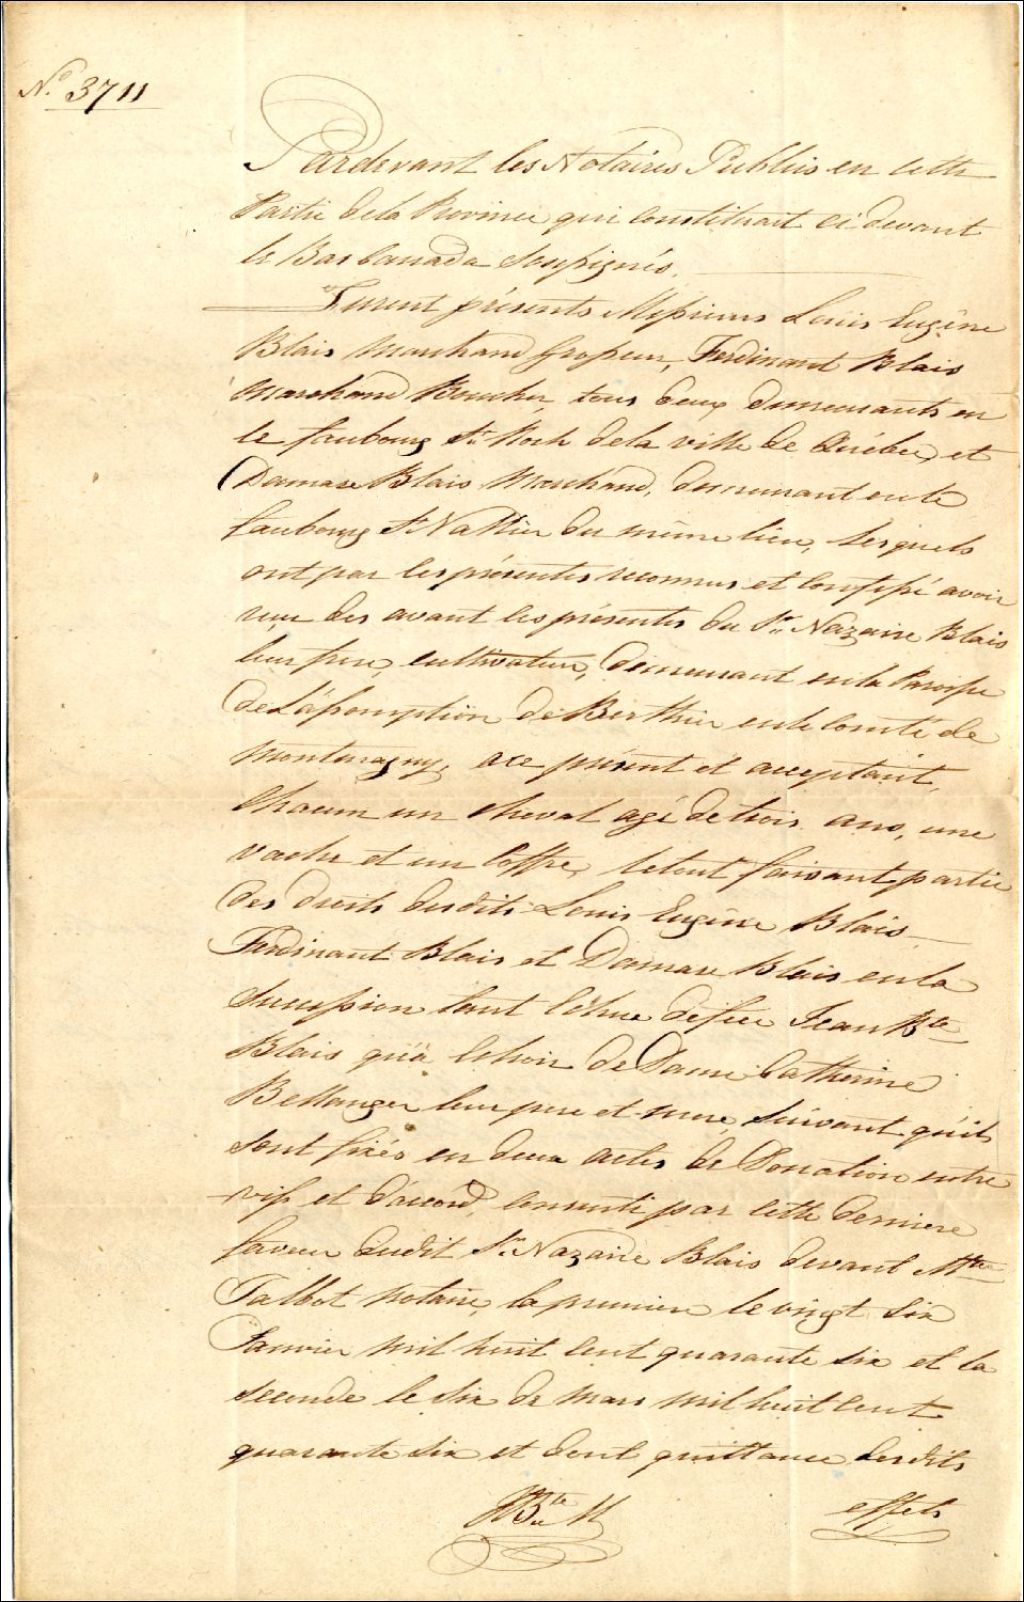 No. 3711
Pardevant les Notaires Publics en cette
Partie de la Province qui constituait ci devant
le Bas Canada Soussignés.
Furent présents Messieurs Louis Eugène
Blais Marchand Grosseur, Ferdinant Blais
Marchand Boucher, tous deux demeurants en
le faubourg St. Roch de la ville de Québec, et
Damase Blais Marchand, demeurant en le
faubourg St Vallier du même lieu, Lesquels
ont par les présentes reconnus et confessé avoir
reçu des avant les présentes du Sr. Nazaire Blais
leur frere, cultivateur, demeurant en la Paroisse
de L'assomption de Berthier en le Comté de
Montmagny, a ce présent et acceptant,
Chacun un cheval agé de trois ans, une
vache et un Coffre, le tout faisant partie
des droits desdits Louis Eugène Blais
Ferdinant Blais et Damase Blais en la
Succession tant échue de feu Jean Bte
Blais qu'à échoir de Dame Catherine
Bellanger leur pere et mere, Suivant qu'ils
sont fixés en deux actes de Donation entre
vifs et d'accord, consenti par cette derniere
faveur dudit Sr. Nazaire Blais devant Mtre
Talbot Notaire, la premiere le vingt Six
Janvier mil huit cent quarante six et la
seconde le Six de Mars mil huit cent
quarante six et dont quittance desdits
effets